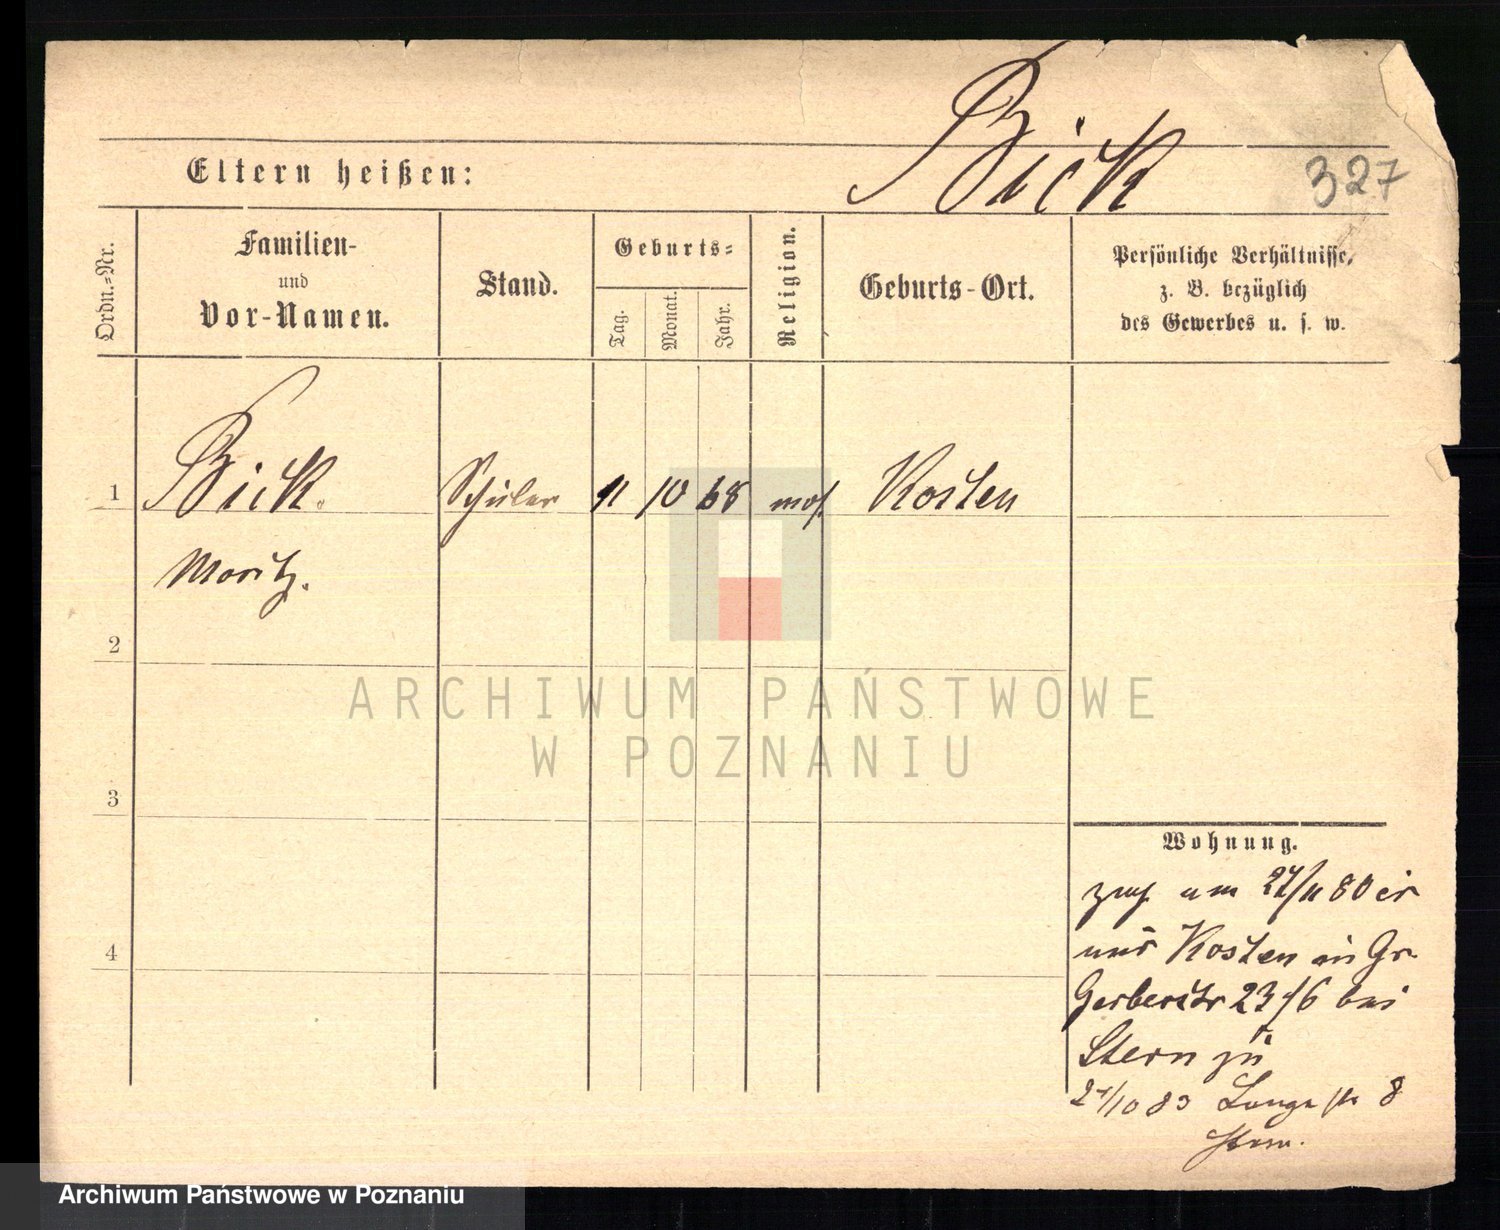 Bick
327
Eltern heißen:
Ordn.-Nr.
Familien-
und
Vor-Namen.
Stand.
Geburts-
Tag.
Monat.
Jahr.
Religion.
Geburts-Ort.
Persönliche Verhältnisse,
z. B. bezüglich
des Gewerbes u. s. w.
1 Bick. Schüler 11 10 68 mos. Kosten
Moritz.
2
3
4
Wohnung.
am 80
aus Kosten in Gr.
Gerberstr 23/6 bei
Stern zu
/10 83 Lange str 8
Stern.
ARCHIWUM PAŃSTWOWE
W POZNANIU
Archiwum Państwowe w Poznaniu